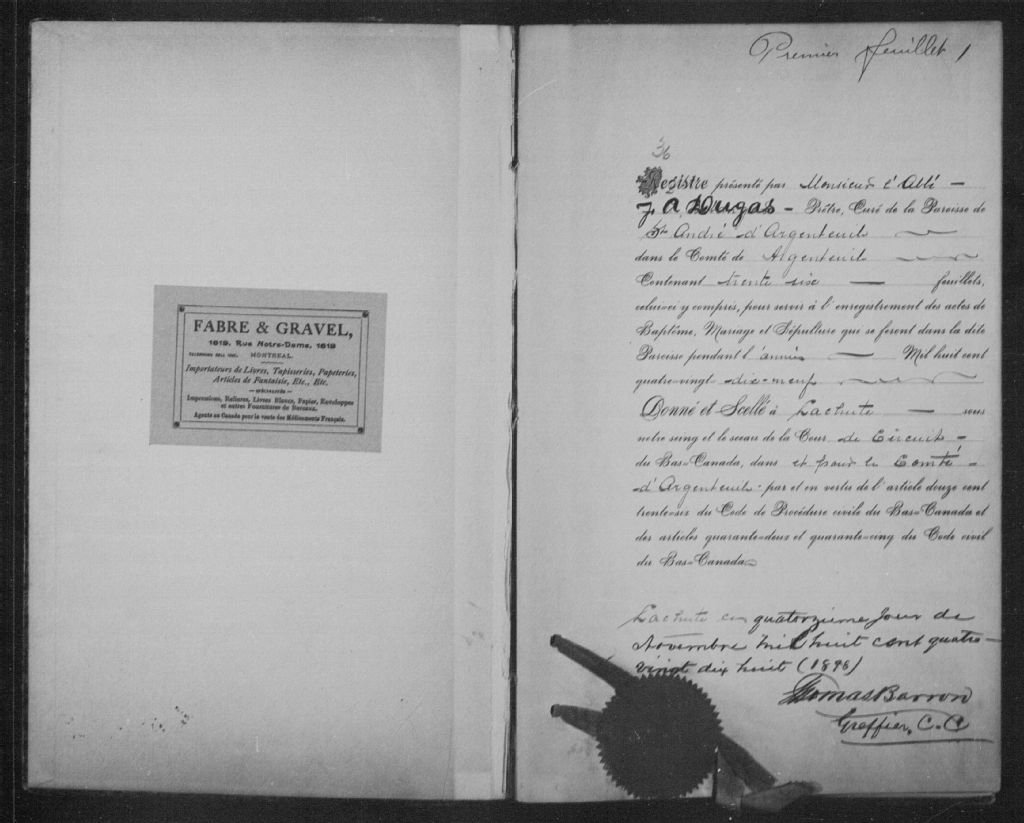 FABRE & GRAVEL,
1619, Rue Notre-Dame, 1619
TELEPHONE BELL MONTREAL.
Importateurs de Livres, Tapisseries, Papeteries,
Articles de Fantaisie, Etc., Etc.
— SPÉCIALITÉS —
Impressions, Reliures, Livres Blancs, Papier, Enveloppes
et autres Fournitures de Bureaux.
Agents au Canada pour la vente des Médicaments Français.
Premier feuillet 1
36
Registre présenté par Monsieur l'Abbé —
J A Dugas — Prêtre, Curé de la Paroisse de
St André d'Argenteuil
dans le Comté de Argenteuil
Contenant trente six — feuillets,
celui-ci y compris, pour servir à l'enregistrement des actes de
Baptême, Mariage et Sépulture qui se feront dans la dite
Paroisse pendant l'année — Mil huit cent
quatre-vingt dix-neuf
Donné et Scellé à Lachute — sous
notre seing et le sceau de la Cour de Circuit -
du Bas-Canada, dans et pour le Comté -
d'Argenteuil - par et en vertu de l'article douze cent
trente-six du Code de Procédure civile du Bas-Canada et
des articles quarante-deux et quarante-cinq du Code civil
du Bas-Canada
Lachute ce quatorzieme Jour de
Novembre mil huit cent quatre-
vingt dix huit (1898)
Thomas Barron
Greffier, C. C